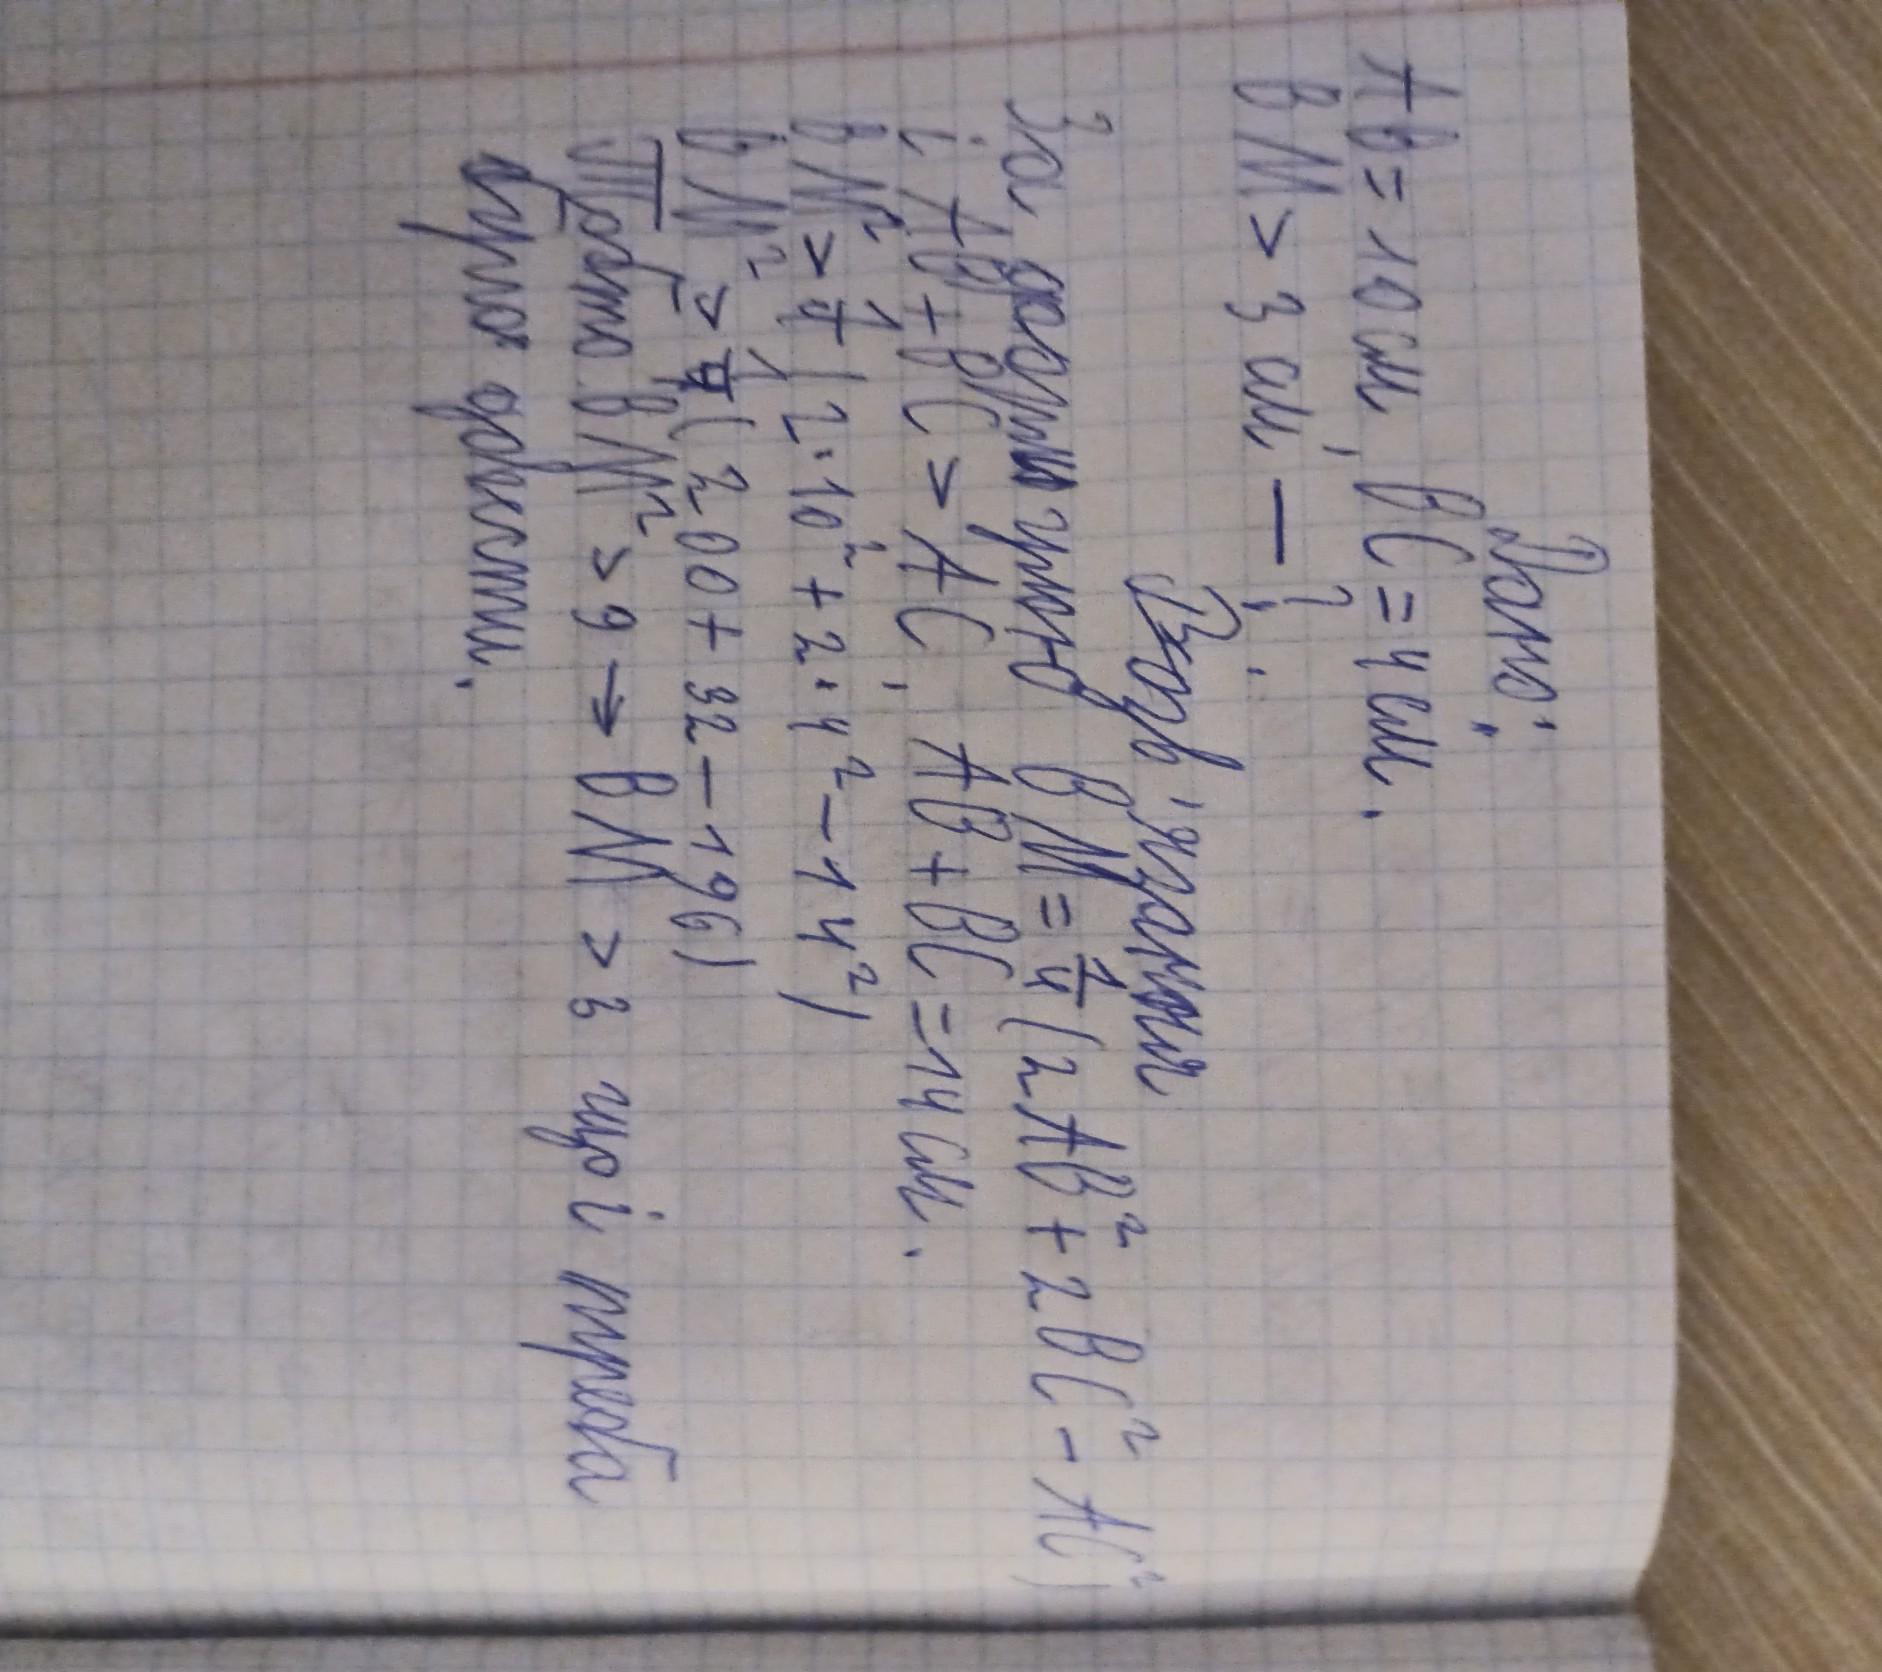 Дано:
AB = 10 см, BC = 4 см.
BM > 3 см – ?
Розв'язання
За формулою BM = 1/4 (2AB² + 2BC² - AC²)
і AB + BC > AC, AB + BC = 14 см.
BM² > 1/4 (2·10² + 2·4² - 14²)
BM² > 1/4 (200 + 32 - 196)
Тобто BM² > 9 → BM > 3 що і треба
було довести.